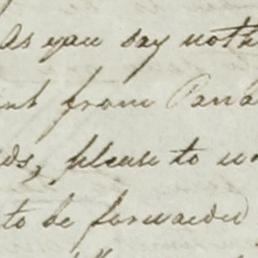 As you say noth
nt from Cana
ds, please to w
to be forwarded